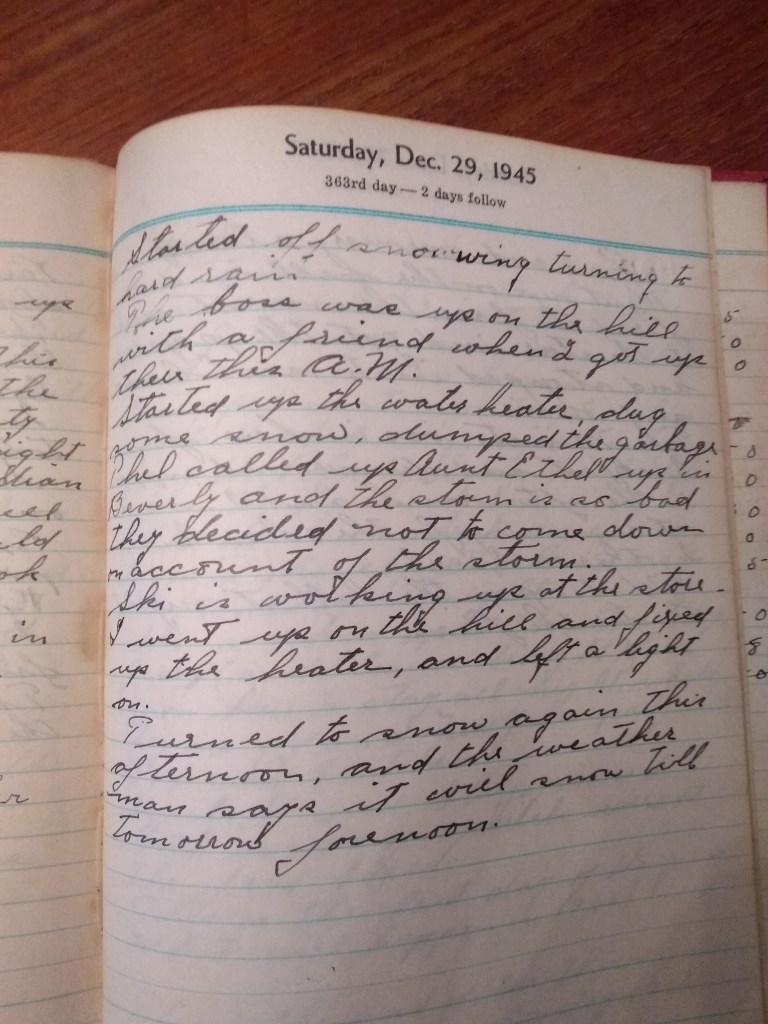 Saturday, Dec. 29, 1945
363rd day — 2 days follow
Started off snowing turning to
hard rain
The boss was up on the hill
with a friend when I got up
there this A.M.
Started up the water heater, dug
some snow, dumped the garbage
Phil called up Aunt Ethel up in
Beverly and the storm is so bad
they decided not to come down
on account of the storm.
Ski is working up at the store.
I went up on the hill and fixed
up the heater, and left a light
on.
Turned to snow again this
afternoon, and the weather
man says it will snow till
tomorrow forenoon.